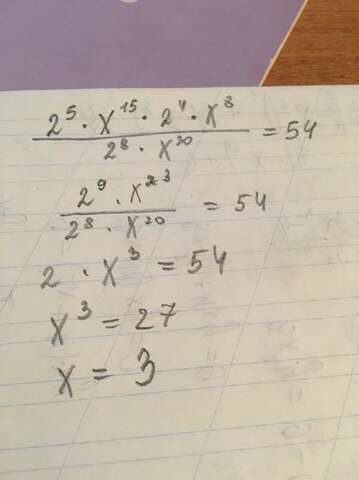 2⁵ · x¹⁵ · 2⁴ · x⁸ / 2⁸ · x²⁰ = 54
2⁹ · x²³ / 2⁸ · x²⁰ = 54
2 · x³ = 54
x³ = 27
x = 3